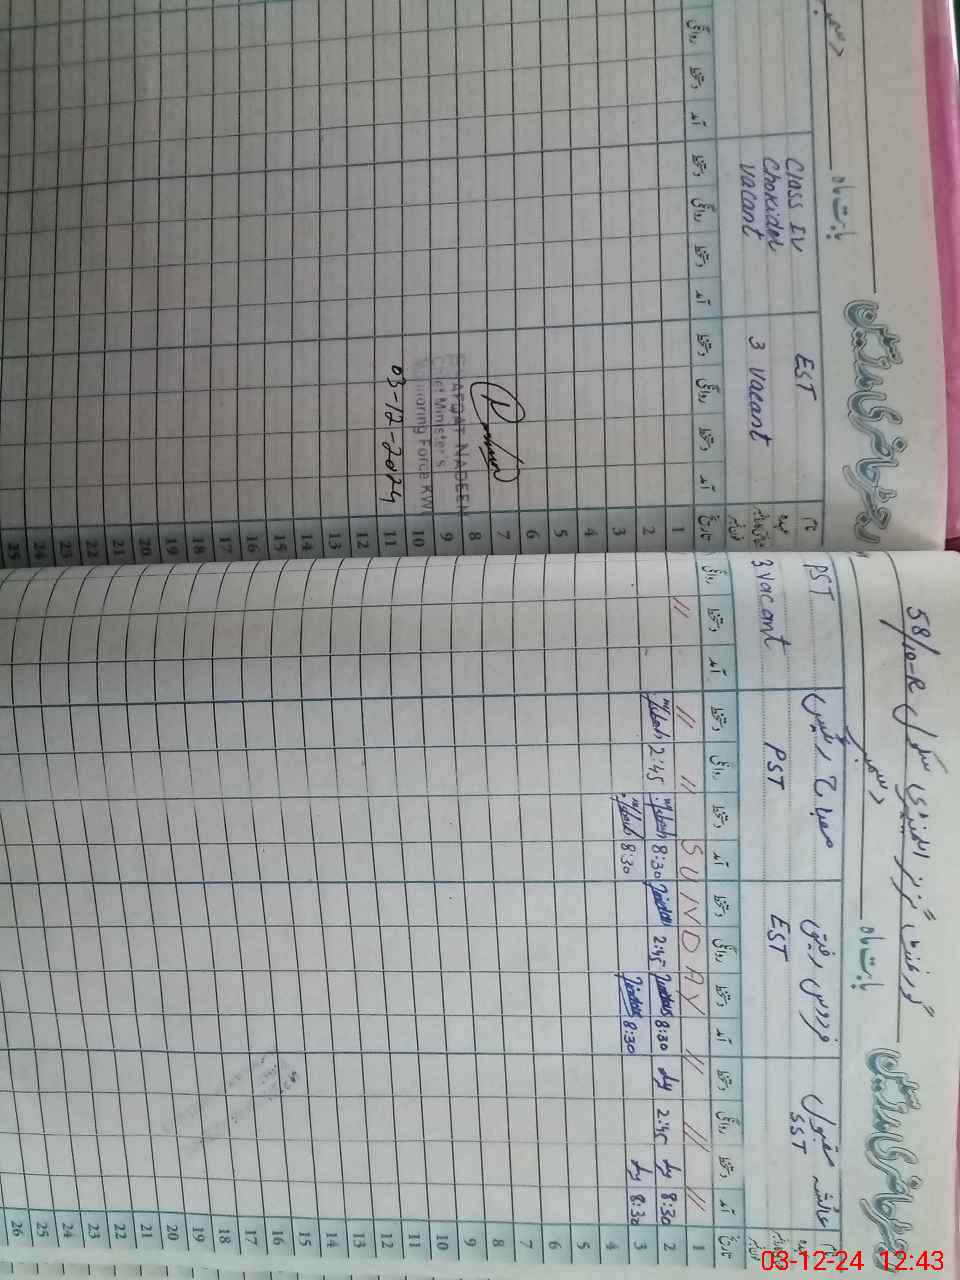 رجسٹر حاضری مدرسین
بابت ماہ دسمبر
گورنمنٹ گرلز ایلیمنٹری سکول 58/10-R
نام
عہدہ
عائشہ مقبول
SST
فردوس رفیق
EST
مصباح رفیق
PST
PST
3 vacant
تاریخ آمد دستخط روانگی دستخط آمد دستخط روانگی دستخط آمد دستخط روانگی دستخط آمد دستخط روانگی
1 〃 〃 〃 SUNDAY 〃 〃 〃
2 8:30 2:45 8:30 2:45 8:30 2:45
3 8:30 8:30 8:30
4
5
6
7
8
9
10
11
12
13
14
15
16
17
18
19
20
21
22
23
24
25
26
رجسٹر حاضری مدرسین
بابت ماہ دسمبر
نام
عہدہ
EST
3 vacant
Class IV
Chokidar
vacant
تاریخ آمد دستخط روانگی دستخط آمد دستخط روانگی دستخط آمد دستخط روانگی
1
2
3
4
5
6
7
8
9
10
11
12
13
14
15
16
17
18
19
20
21
22
23
24
25
NADEEM
Chief Minister's
Monitoring Force KWL
03-12-2024
03-12-24 12:43